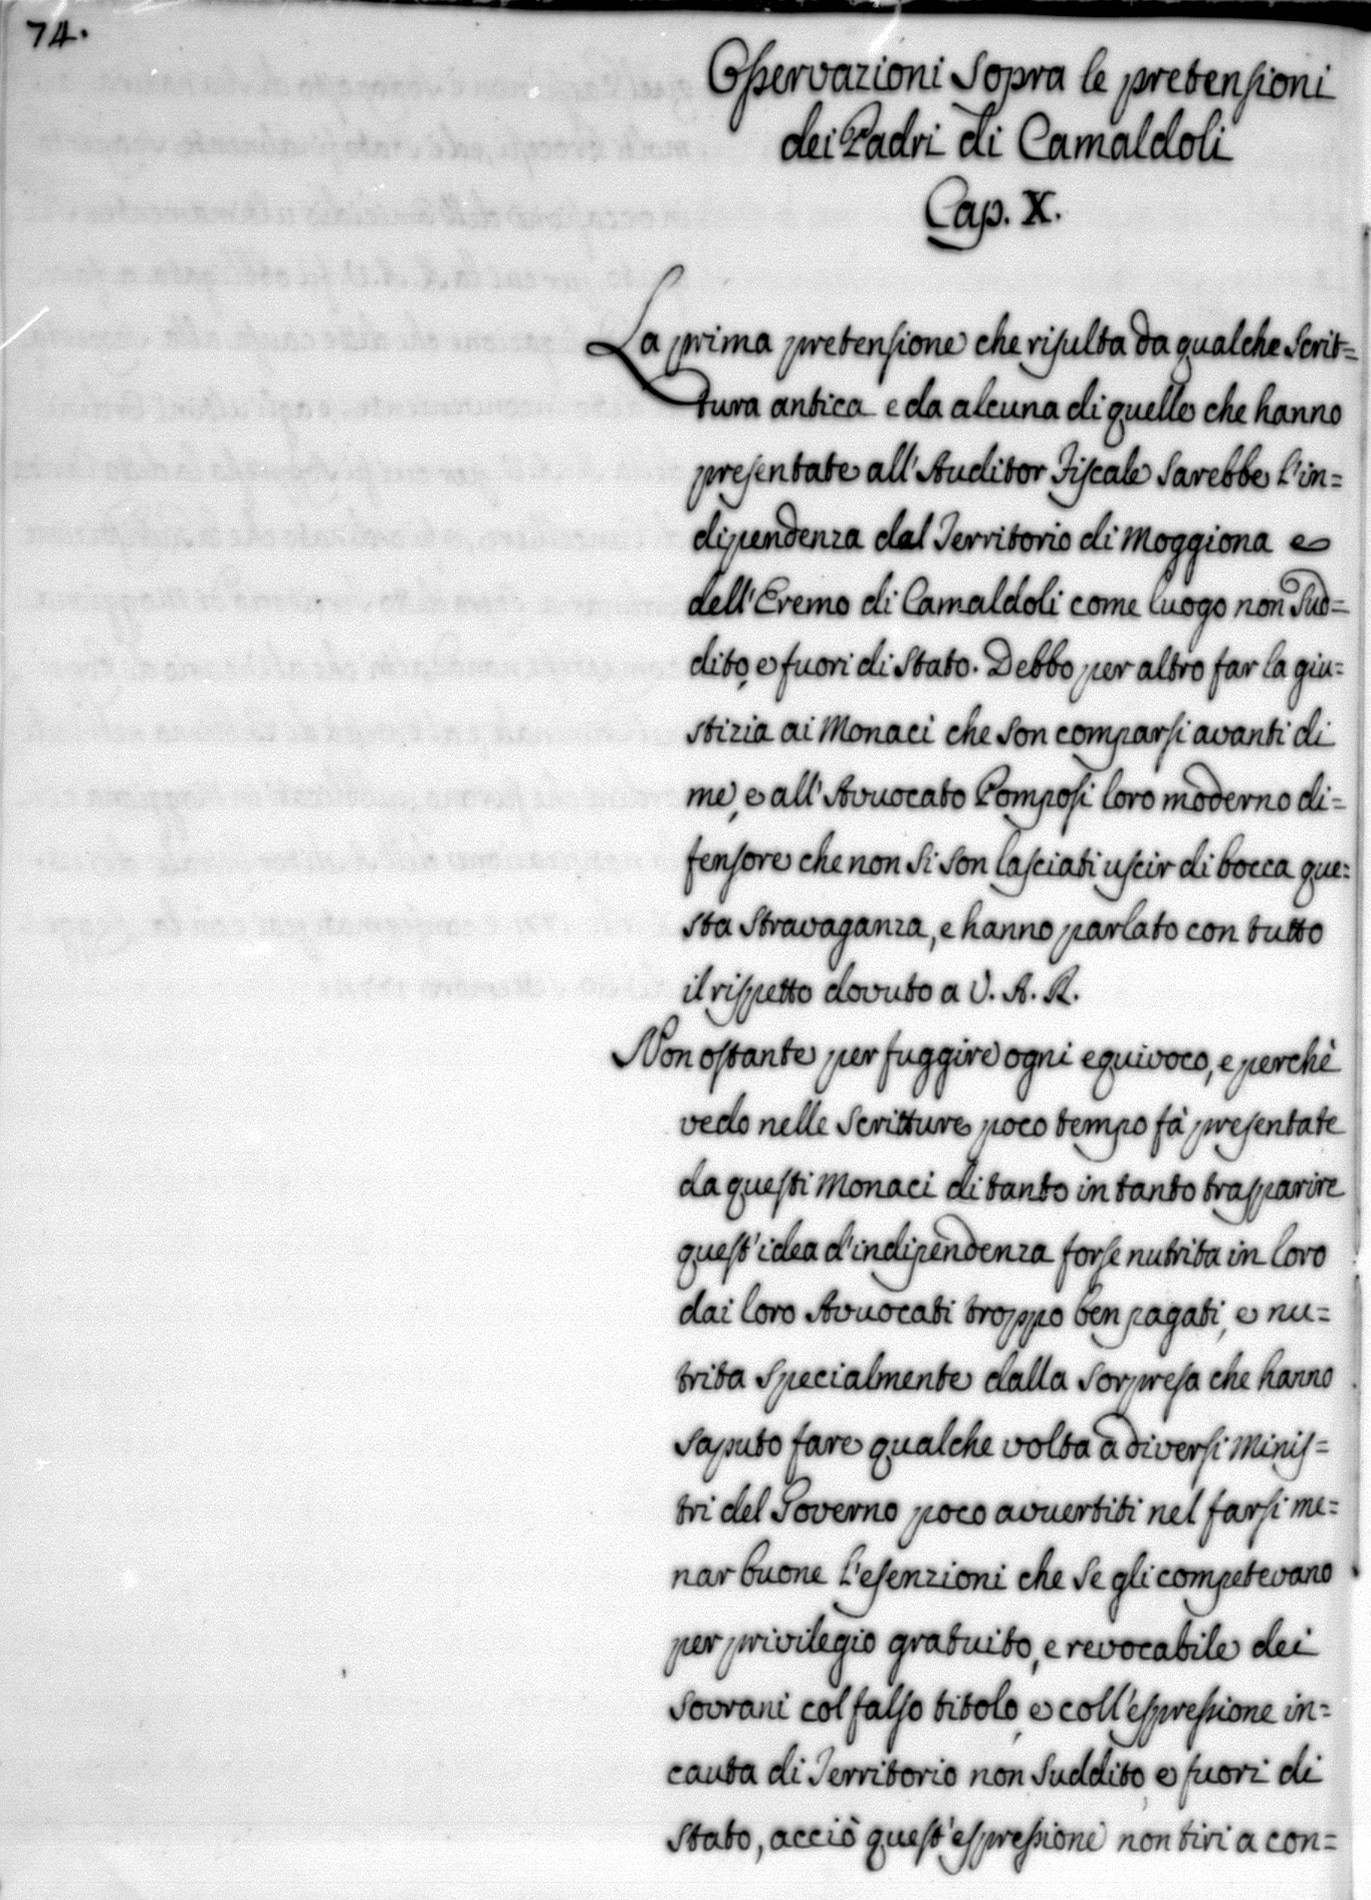 74.
Osservazioni sopra le pretensioni
dei Padri di Camaldoli
Cap. X.
La prima pretensione che risulta da qualche scrit=
tura antica e da alcuna di quelle che hanno
presentate all'Auditor Fiscale sarebbe l'in=
dipendenza dal Territorio di Moggiona e
dell'Eremo di Camaldoli come luogo non sud=
dito, e fuori di stato. Debbo per altro far la giu=
stizia ai Monaci che son comparsi avanti di
me, e all'Avvocato Pomposi loro moderno di=
fensore che non si son lasciati uscir di bocca que=
sta stravaganza, e hanno parlato con tutto
il rispetto dovuto a V. A. R.
Non ostante per fuggire ogni equivoco, e perchè
vedo nelle scritture poco tempo fà presentate
da questi Monaci di tanto in tanto trasparire
quest'idea d'indipendenza forse nutrita in loro
dai loro Avvocati troppo ben pagati, e nu=
trita specialmente dalla sorpresa che hanno
saputo fare qualche volta a diversi Minis=
tri del Governo poco avvertiti nel farsi me=
nar buone l'esenzioni che se gli competevano
per privilegio gratuito, e revocabile dei
sovrani col falso titolo, e coll'espressione in=
cauta di Territorio non suddito, e fuori di
stato, acciò quest'espressione non tiri a con=